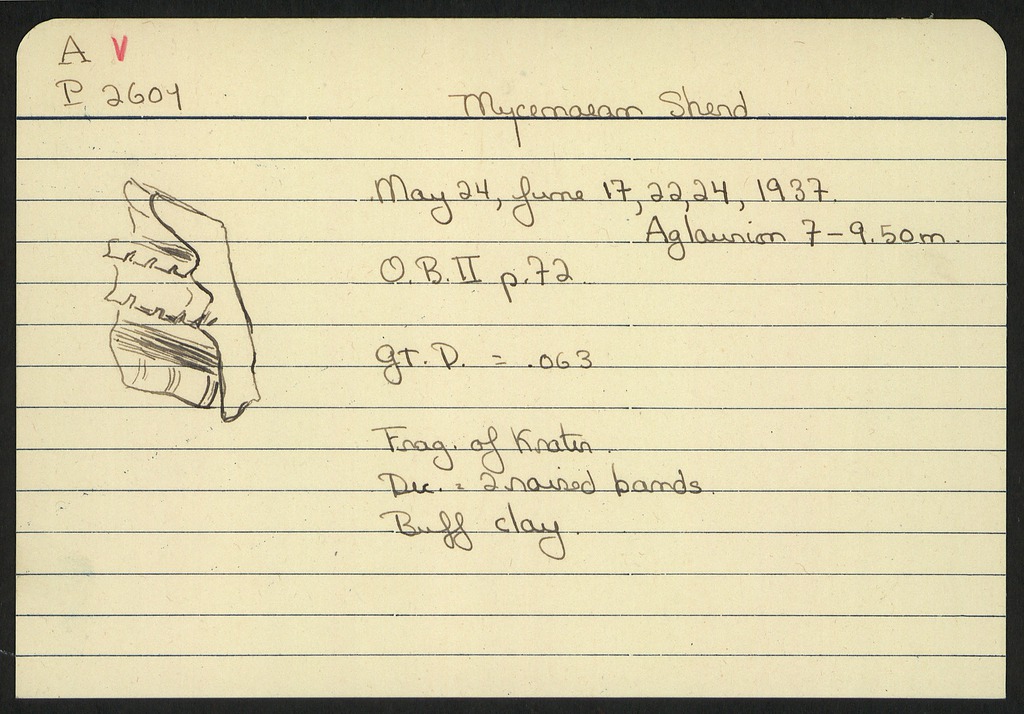 A V
P 2604
Mycenaean Sherd
May 24, June 17, 22, 24, 1937.
Aglaurion 7-9.50m.
O.B.II p.72
gt. D. = .063
Frag. of Krater.
Dec. = 2 raised bands.
Buff clay.